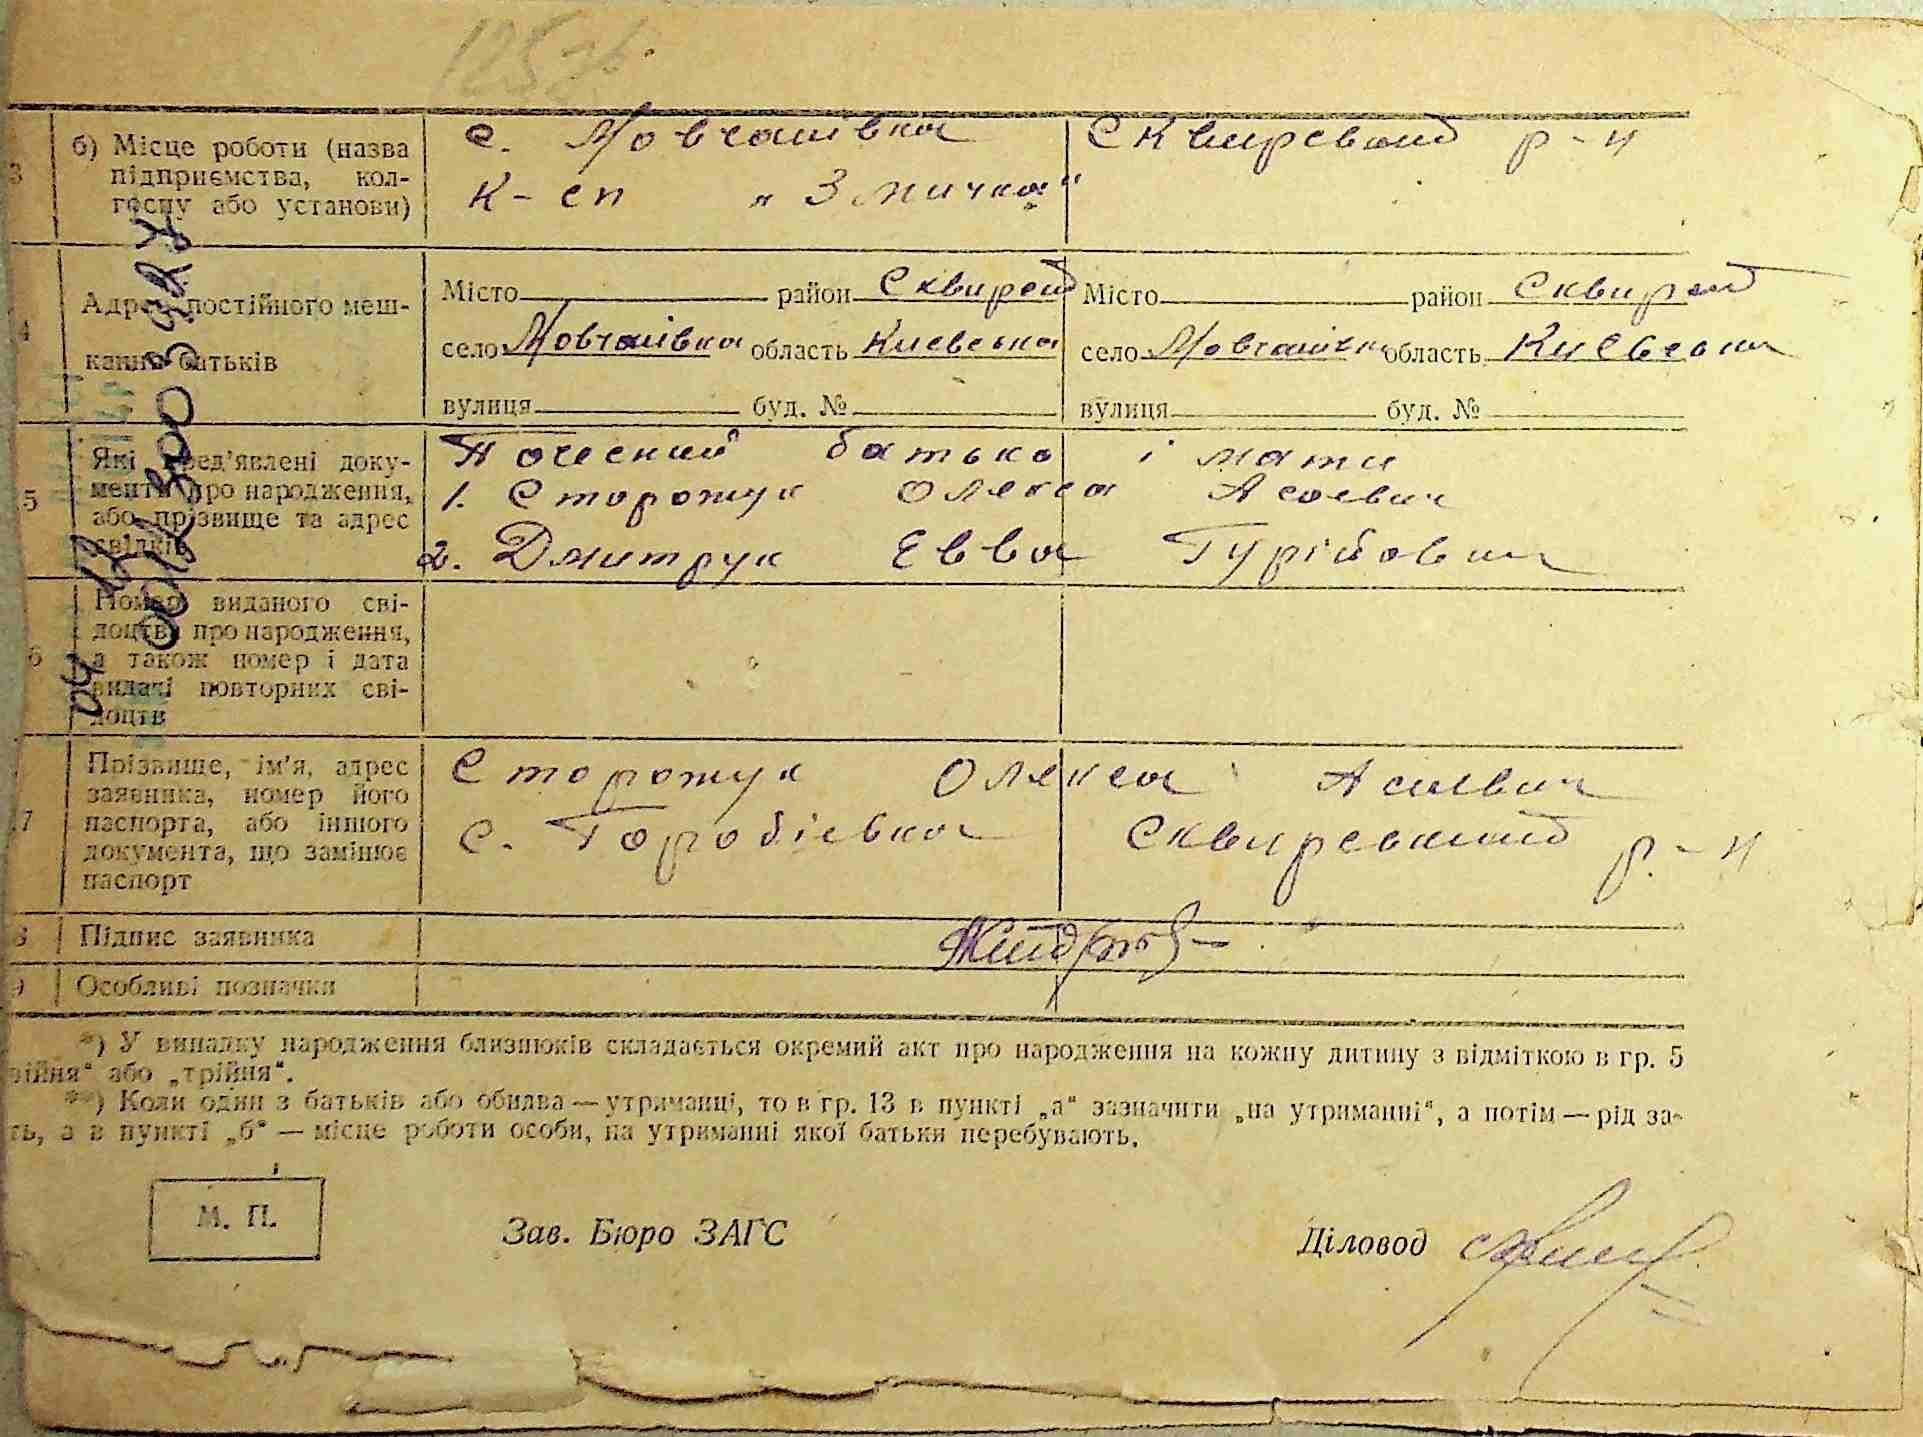 125
3 б) Місце роботи (назва підприємства, колгоспу або установи)
с. Мовчанівка Сквирський р-н
к-сп „Змичка“
4 Адрес постійного мешкання батьків
Місто район Сквирськ
село Мовчанівка область Києвська
вулиця буд. №
Місто район Сквирськ
село Мовчанівка область Києвська
вулиця буд. №
5 Які пред'явлені документи про народження, або прізвище та адрес свідків
Почесний батько і мати
1. Сторожук Олекса
2. Дмитрук Евва Гурійовна
6 Номер виданого свідоцтва про народження, а також номер і дата видачі повторних свідоцтв
7 Прізвище, ім'я, адрес заявника, номер його паспорта, або іншого документа, що замінює паспорт
Сторожук Олекса
с. Горобіевка Сквирський р-н
8 Підпис заявника
9 Особливі позначки
*) У випадку народження близнюків складається окремий акт про народження на кожну дитину з відміткою в гр. 5
війня“ або „трійня“.
**) Коли один з батьків або обидва — утриманці, то в гр. 13 в пункті „а“ зазначити „на утриманні“, а потім — рід за-
ть, а в пункті „б“ — місце роботи особи, на утриманні якої батьки перебувають.
М. П.
Зав. Бюро ЗАГС
Діловод